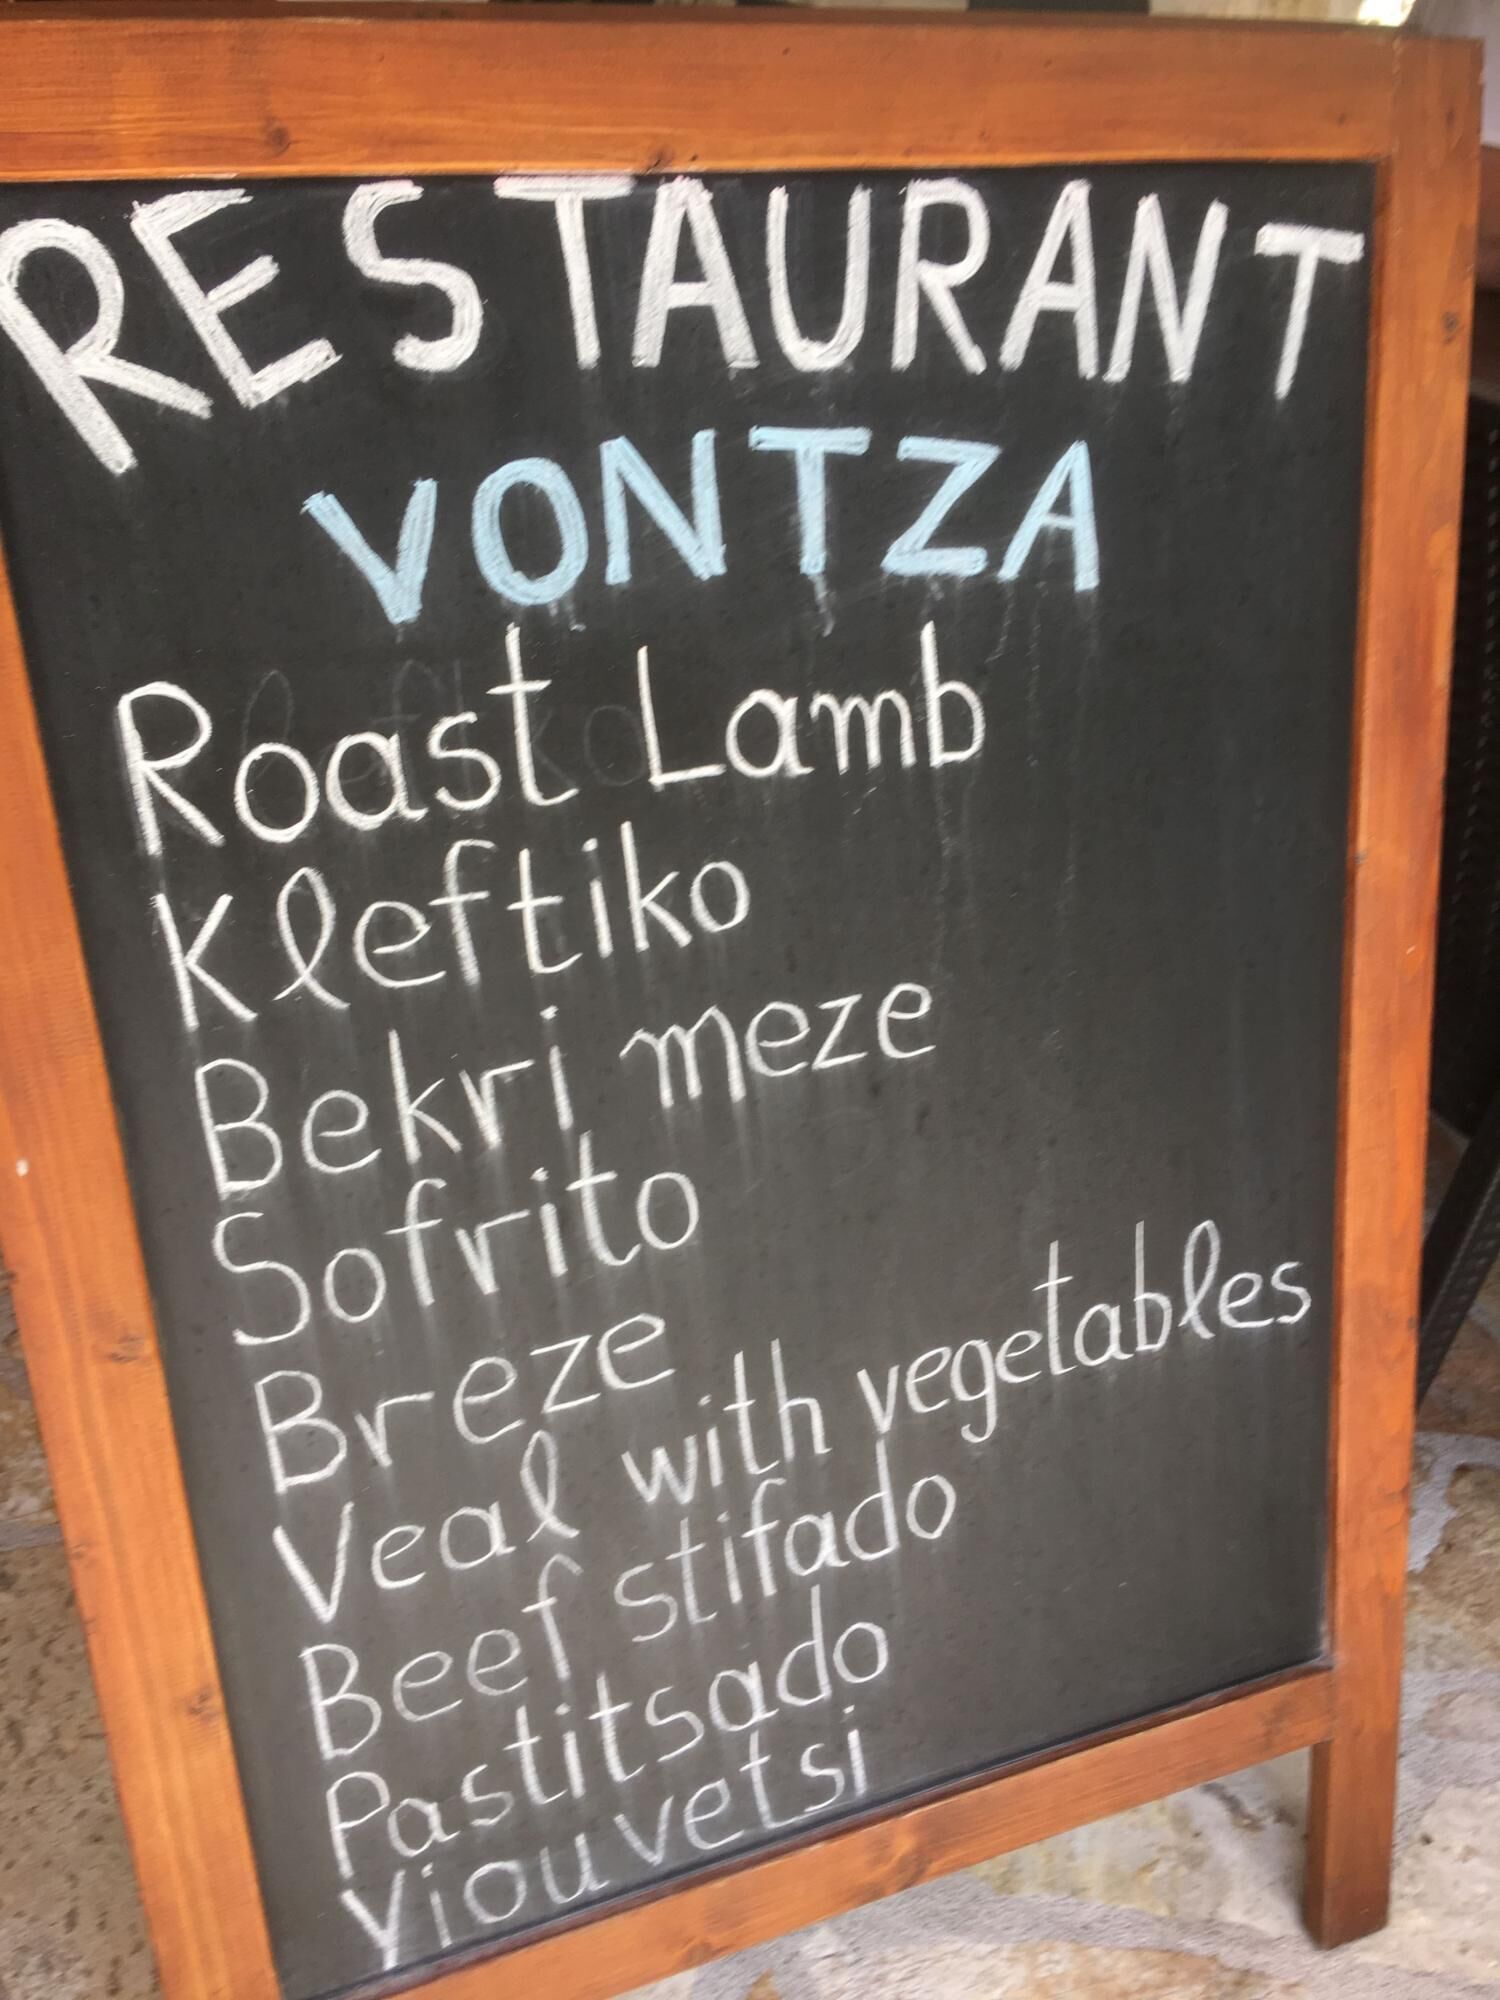 RESTAURANT
VONTZA
Roast Lamb
Kleftiko
Bekri meze
Sofrito
Breze
Veal with vegetables
Beef stifado
Pastitsado
Yiouvetsi